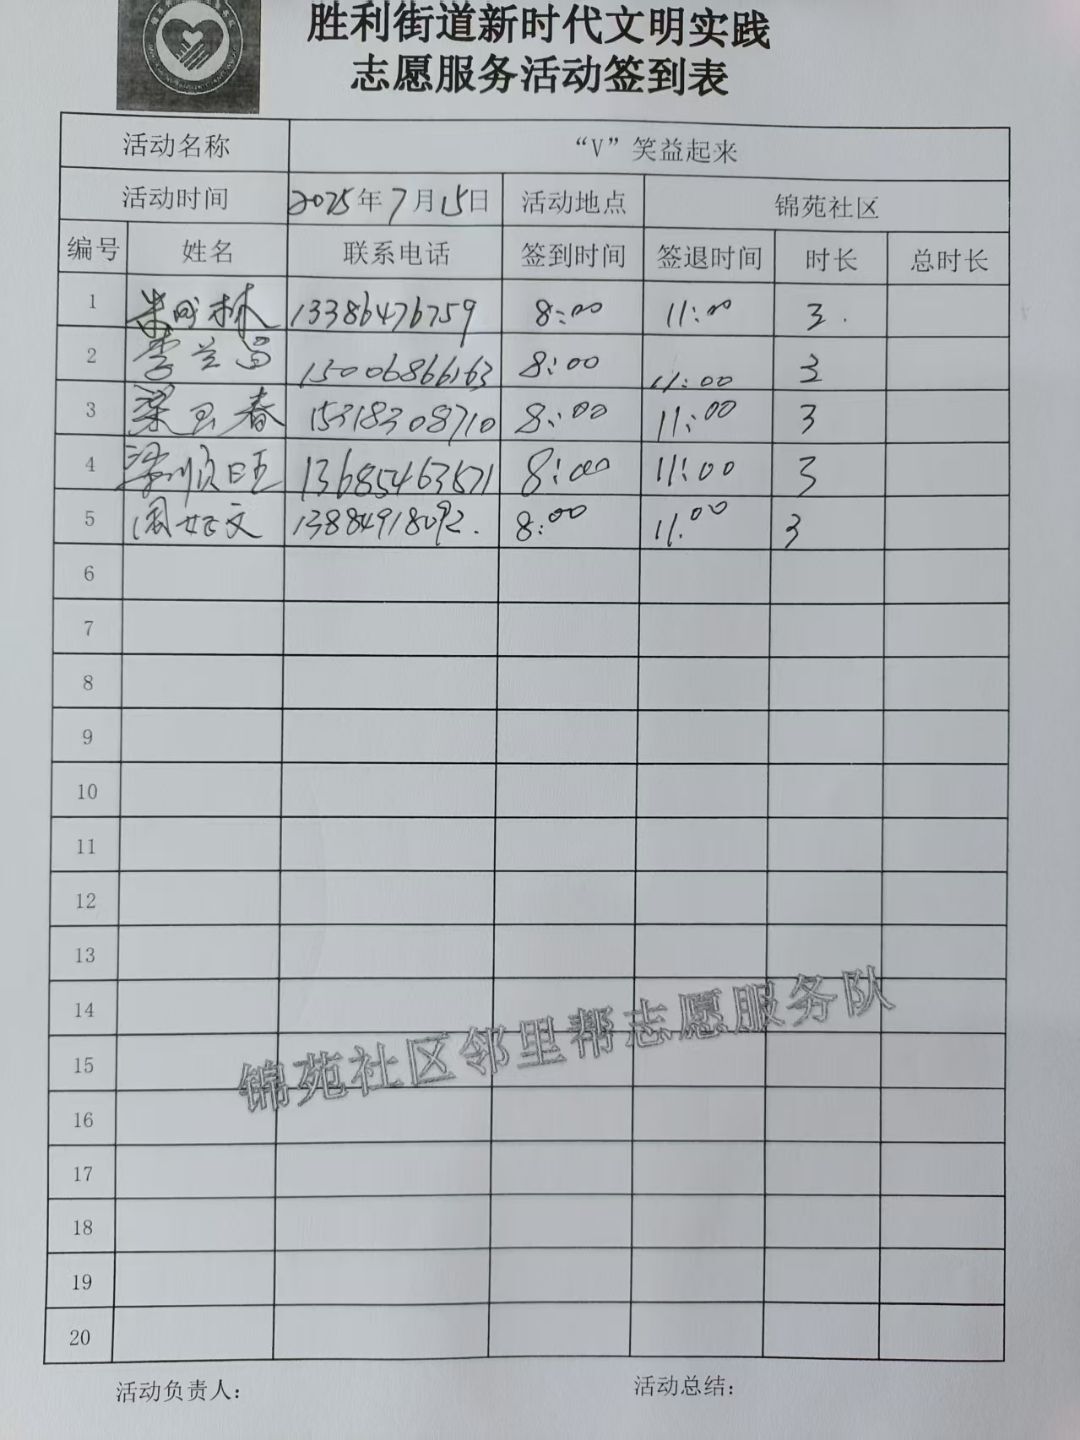 胜利街道新时代文明实践
志愿服务活动签到表
活动名称 “V”笑益起来
活动时间 2025年7月15日 活动地点 锦苑社区
编号 姓名 联系电话 签到时间 签退时间 时长 总时长
1 林 13386476759 8:00 11:00 3.
2 李兰 15006866163 8:00 11:00 3
3 梁玉春 15318308710 8:00 11:00 3
4 梁顺旺 13685463571 8:00 11:00 3
5 周好文 13884918092. 8:00 11:00 3
6
7
8
9
10
11
12
13
14
15
16
17
18
19
20
锦苑社区邻里帮志愿服务队
活动负责人： 活动总结：